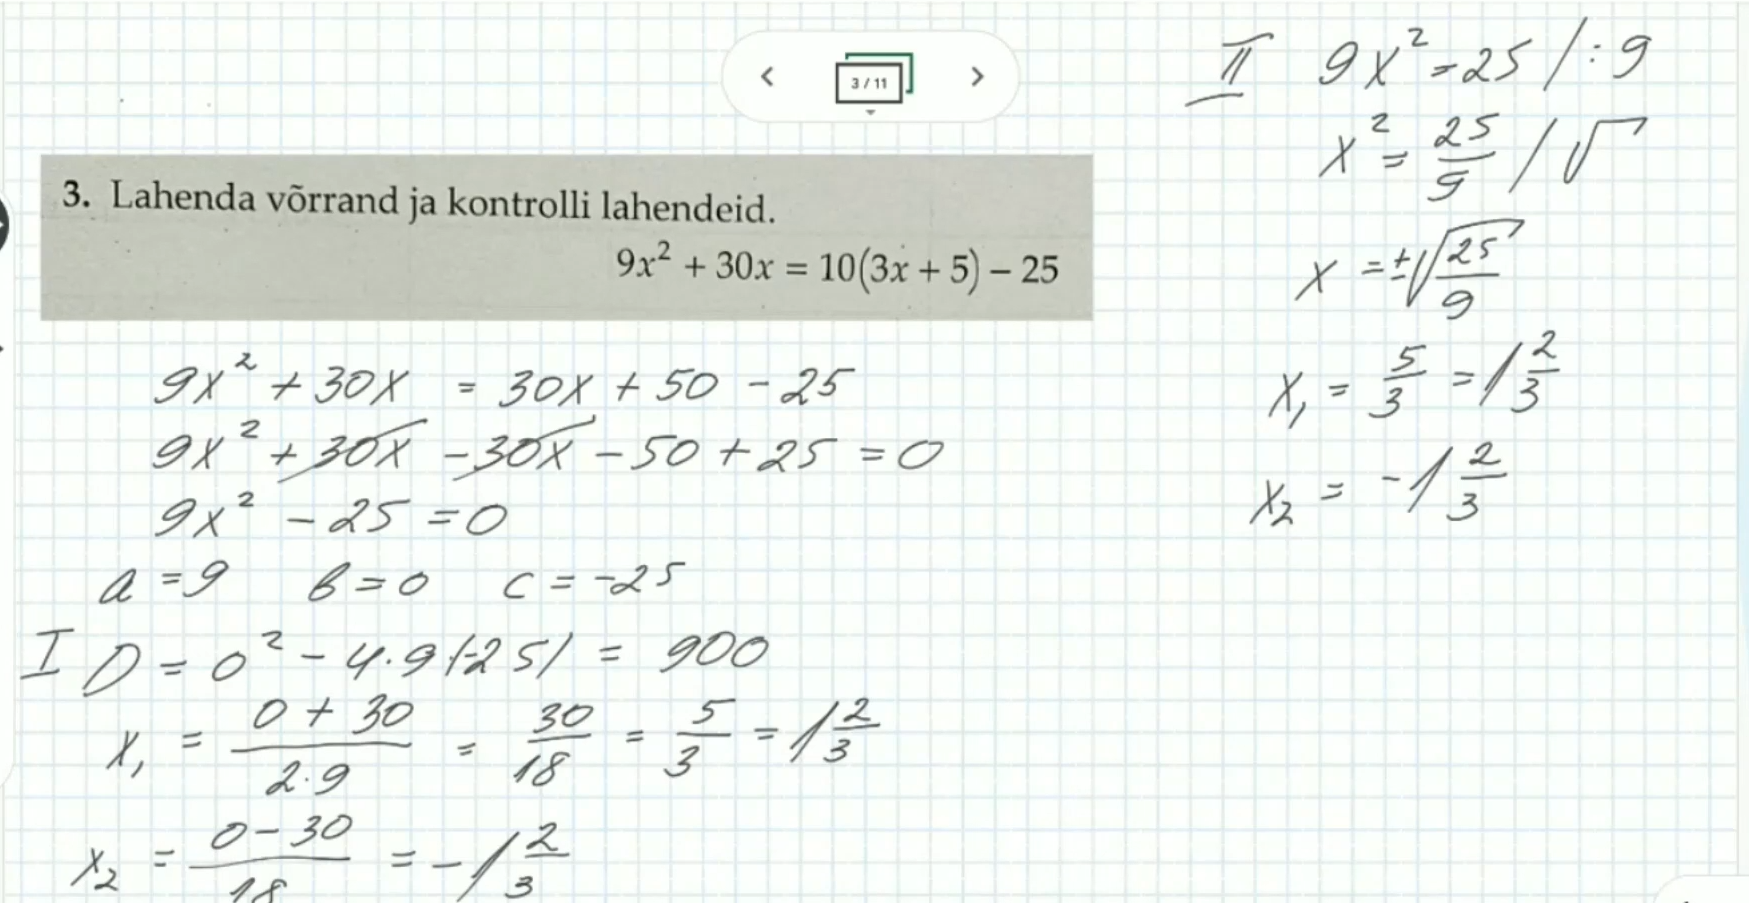 3 / 11
3. Lahenda võrrand ja kontrolli lahendeid.
9x² + 30x = 10(3x + 5) – 25
9x² + 30x = 30x + 50 - 25
9x² + 30x - 30x - 50 + 25 = 0
9x² - 25 = 0
a = 9 b = 0 c = -25
I D = 0² - 4·9·(-25) = 900
x₁ = (0 + 30)/(2·9) = 30/18 = 5/3 = 1 2/3
x₂ = (0 - 30)/18 = -1 2/3
II 9x² = 25 / : 9
x² = 25/9 / √
x = ±√(25/9)
x₁ = 5/3 = 1 2/3
x₂ = -1 2/3